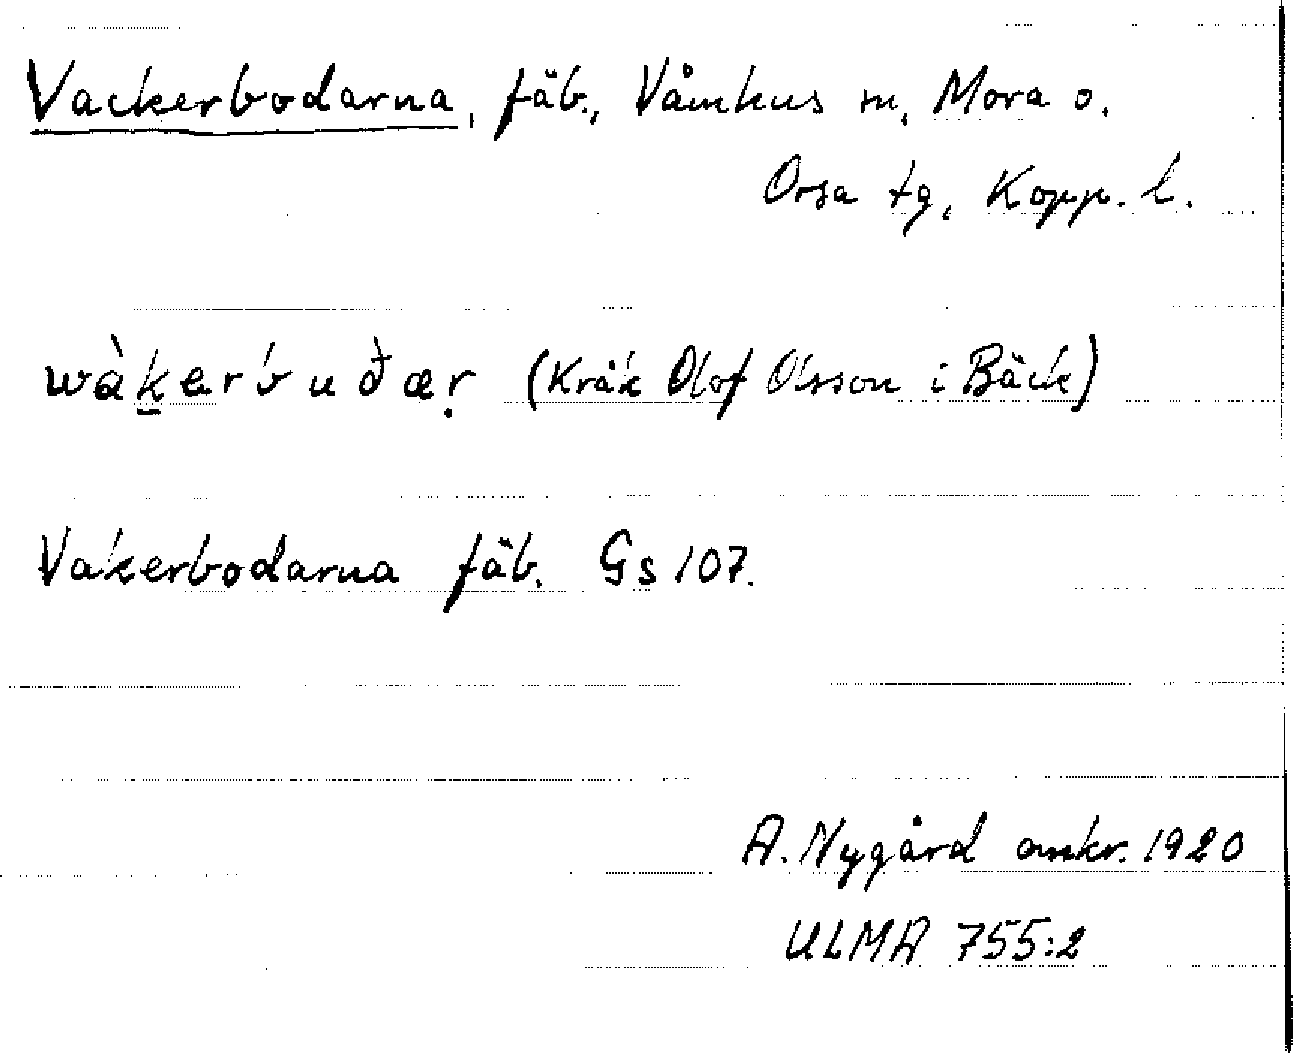 Vackerbodarna, fäb., Våmhus sn, Mora o.
Orsa tg, Kopp. l.
wàk̲erbuðæṛ (Kråk Olof Olsson i Bäck)
Vakerbodarna fäb. Gs 107.
A. Nygård omkr. 1920
ULMA 755:2